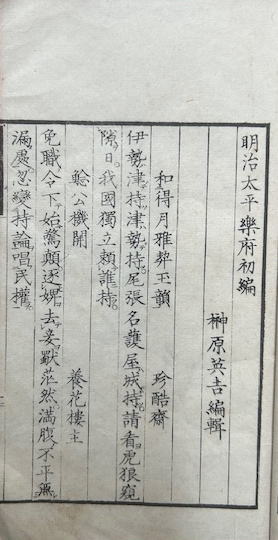 明治太平樂府初編
榊原英吉編輯
和得月雅契玉韻 珍酷齋
伊勢津持津勢持尾張名護屋城持請看虎狼窺
隙日我國獨立賴誰持
鯰公機開 養花樓主
免職令下始驚顛逐婢去妾獸茫然滿腹不平無
漏處忽變持論唱民權